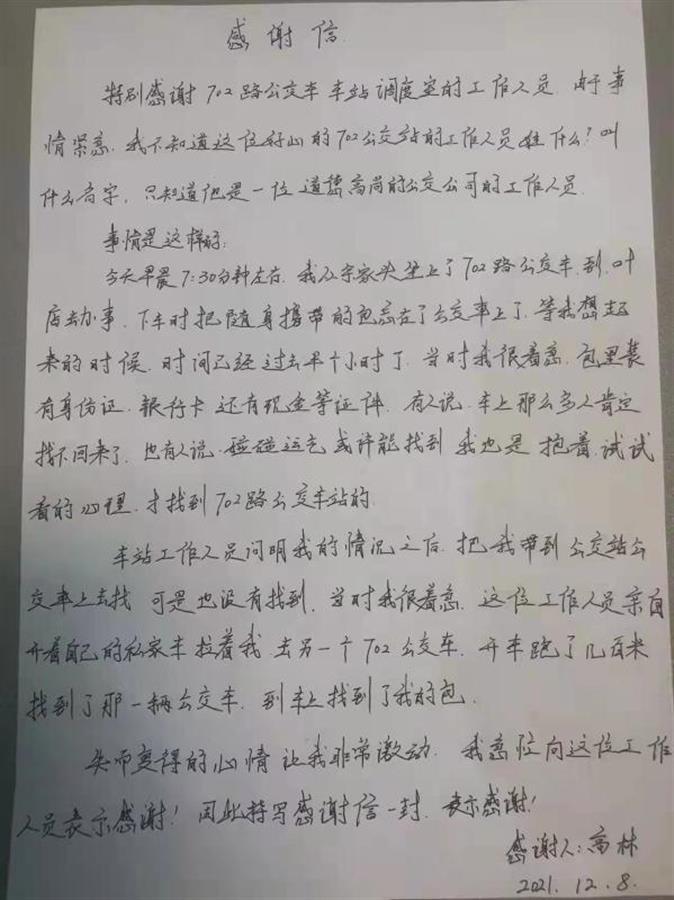 感谢信
特别感谢702路公交车车站调度室的工作人员.由于事
情紧急.我不知道这位好心的702公交站的工作人员姓什么?叫
什么名字,只知道他是一位道德高尚的公交公司的工作人员.
事情是这样的:
今天早晨7:30分钟左右.我从宋家头坐上了702路公交车.到.叶
店去办事.下车时把随身携带的包忘在了公交车上了.等我想起
来的时候.时间已经过去半个小时了.当时我很着急.包里装
有身份证.银行卡还有现金等证件.有人说.车上那么多人肯定
找不回来了.也有人说.碰碰运气或许能找到我也是抱着.试试
看的心理.才找到702路公交车站的.
车站工作人员问明我的情况之后.把我带到公交站公
交车上去找可是也没有找到.当时我很着急.这位工作人员亲自
开着自己的私家车拉着我.去另一个702公交车.开车跑了几百米
找到了那一辆公交车.到车上找到了我的包.
失而复得的心情让我非常激动.我.向这位工作
人员表示感谢!因此特写感谢信一封.表示感谢!
感谢人:高林
2021.12.8.